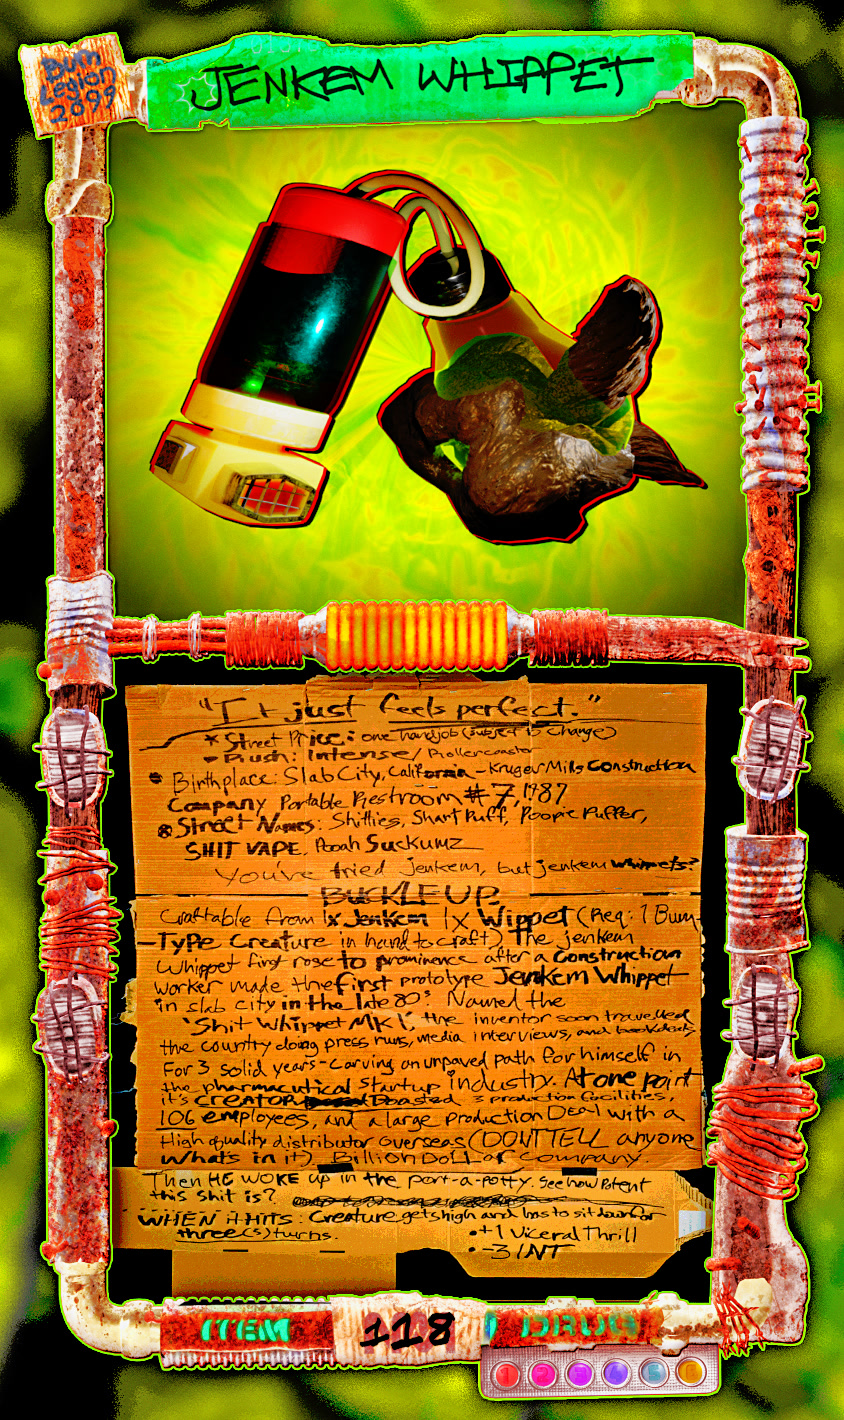 Bum
Legion
2099
JENKEM WHIPPET
"It just feels perfect."
* Street Price: one handjob (subject to change)
Rush: Intense/Rollercoaster
Birthplace: Slab City, California - Kruger Mills Construction
Company Portable Restroom #7, 1987
Street Names: Shitties, Shart Puff, Poopie Puffer,
SHIT VAPE, Pooah Suckumz
You've tried jenkem, but jenkem whippets?
BUCKLE UP.
Craftable from 1x Jenkem 1x Wippet (Req: 1 Bum-
-Type Creature in hand to craft) The jenkem
Whippet first rose to prominence after a construction
worker made the first prototype Jenkem Whippet
in slab city in the late 80s. Named the
'Shit Whippet MK1', the inventor soon travelled
the country doing press runs, media interviews, and book deals
For 3 solid years - carving an unpaved path for himself in
the pharmacutical startup industry. At one point
it's CREATOR boasted 3 production facilities,
106 employees, and a large production DEAL with a
High quality distributor overseas (DONT TELL anyone
Whats in it). Billion Dollar Company
Then HE WOKE up in the port-a-potty. See how potent
this shit is?
WHEN it HITS: Creature gets high and has to sit down for
three(3) turns.
• +1 Viceral Thrill
• -3 INT
ITEM
118
DRUG
1 2 3 4 5 6